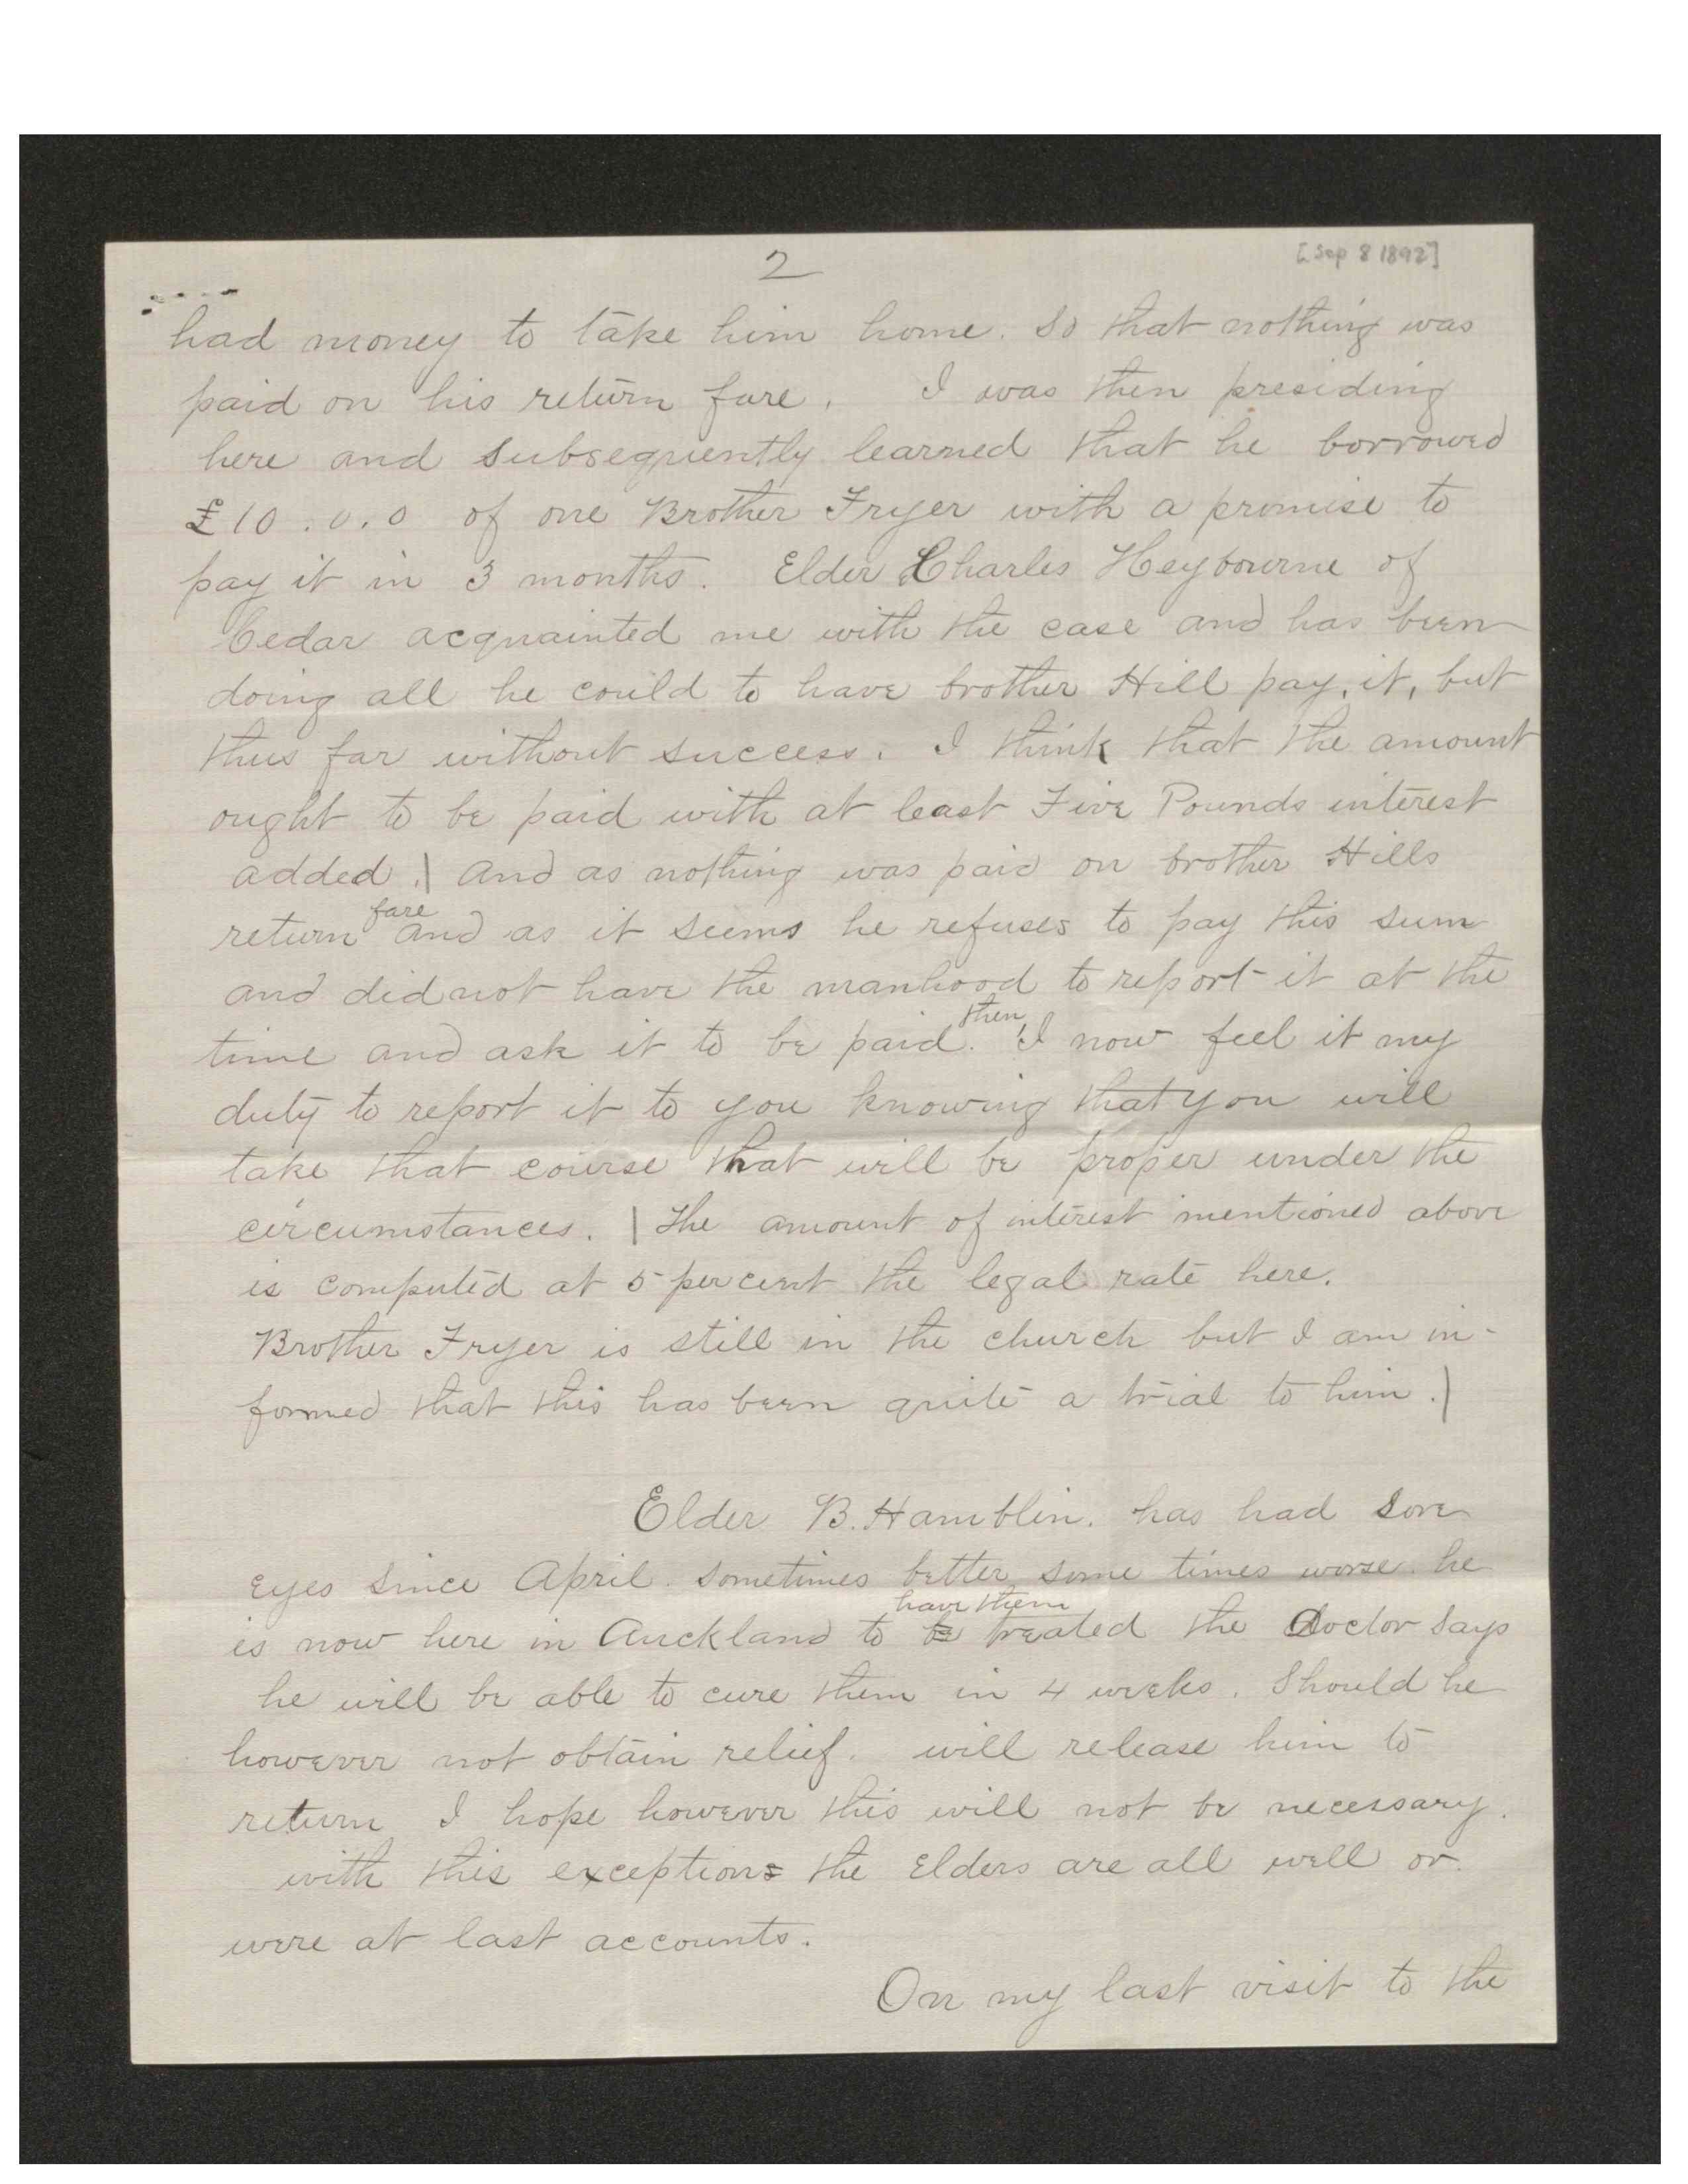 2
[Sep 8 1892]
had money to take him home. So that nothing was
paid on his return fare. I was then presiding
here and subsequently learned that he borrowed
£10.0.0 of one Brother Fryer with a promise to
pay it in 3 months. Elder Charles Heybourne of
Cedar acquainted me with the case and has been
doing all he could to have brother Hill pay, it, but
thus far without success. I think that the amount
ought to be paid with at least Five Pounds interest
added.| And as nothing was paid on brother Hills
return fare and as it seems he refuses to pay this sum
and did not have the manhood to report it at the
time and ask it to be paid. then, I now feel it my
duty to report it to you knowing that you will
take that course that will be proper under the
circumstances. | The amount of interest mentioned above
is computed at 5 per cent the legal rate here.
Brother Fryer is still in the church but I am in-
formed that this has been quite a trial to him.|
Elder B. Hamblin. has had sore
eyes since April. sometimes better some times worse. he
is now here in Auckland to be have them treated the Doctor says
he will be able to cure them in 4 weeks. Should he
however not obtain relief. will release him to
return I hope however this will not be necessary.
with this exceptions the Elders are all well or
were at last accounts.
On my last visit to the